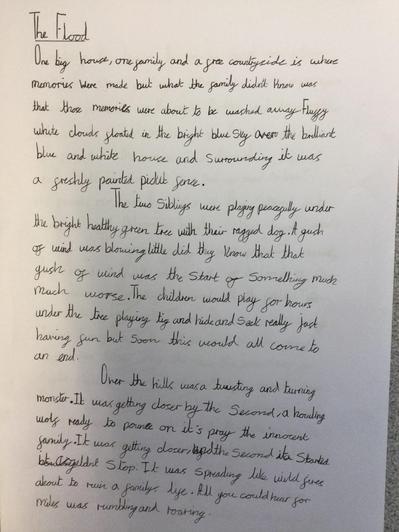 The Flood
One big house, one family and a free countryside is where
memories were made but what the family didn't know was
that those memories were about to be washed away. Fluffy
white clouds floated in the bright blue sky over the brilliant
blue and white house and surrounding it was
a freshly painted picket fence.
The two siblings were playing peacefully under
the bright healthy green tree with their ragged dog. A gush
of wind was blowing little did they know that that
gush of wind was the start of something much
much worse. The children would play for hours
under the tree playing tig and hide and seek really just
having fun but soon this would all come to
an end.
Over the hills was a twisting and turning
monster. It was getting closer by the second, a howling
wolf ready to pounce on it's pray the innocent
family. It was getting closer the second it started
it couldn't stop. It was spreading like wild fire
about to ruin a familys life. All you could hear for
miles was rumbling and roaring.